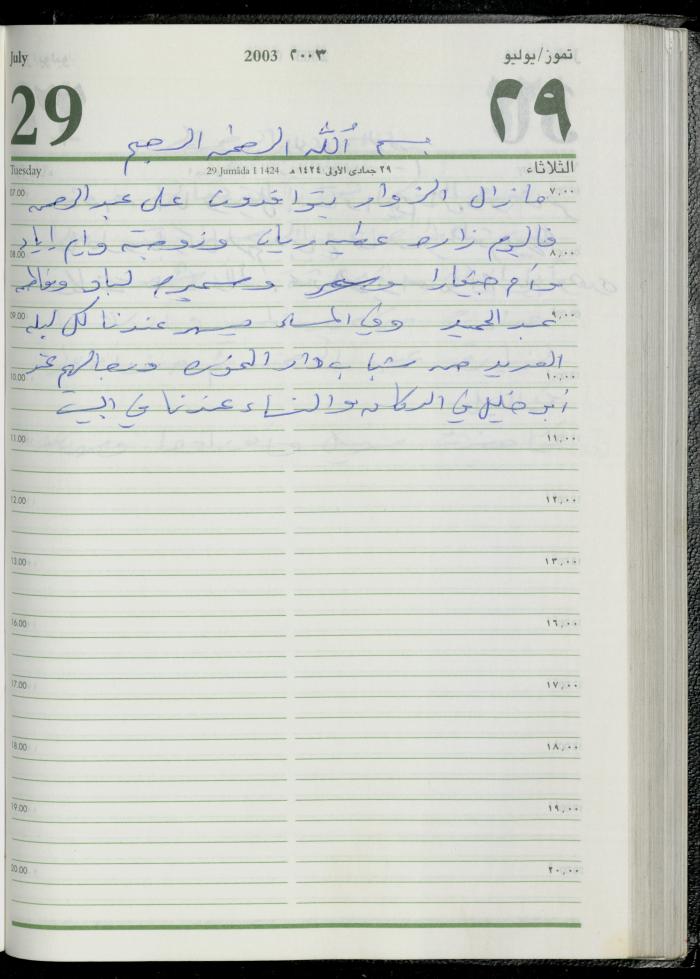 July 2003 ٢٠٠٣ تموز/يوليو
29 ٢٩
بسم الله الرحمن الرحيم
Tuesday 29 Jumâda I 1424 ٢٩ جمادى الأولى ١٤٢٤ هـ الثلاثاء
07.00 مازال الزوار يتوافدون على عبد الرحمن ٧,٠٠
فاليوم زاره عطيه ريان وزوجته وام اياد
08.00 ٨,٠٠
وأم وسميره لباد وفاطمه
09.00 عبد الحميد وفي المساء يسهر عندنا كل ليله ٩,٠٠
العديد من شباب دار الخوره ورجالهم عند
10.00 ١٠,٠٠
أبو خليل في الدكان والنساء عندنا في البيت
11.00 ١١,٠٠
12.00 ١٢,٠٠
13.00 ١٣,٠٠
16.00 ١٦,٠٠
17.00 ١٧,٠٠
18.00 ١٨,٠٠
19.00 ١٩,٠٠
20.00 ٢٠,٠٠